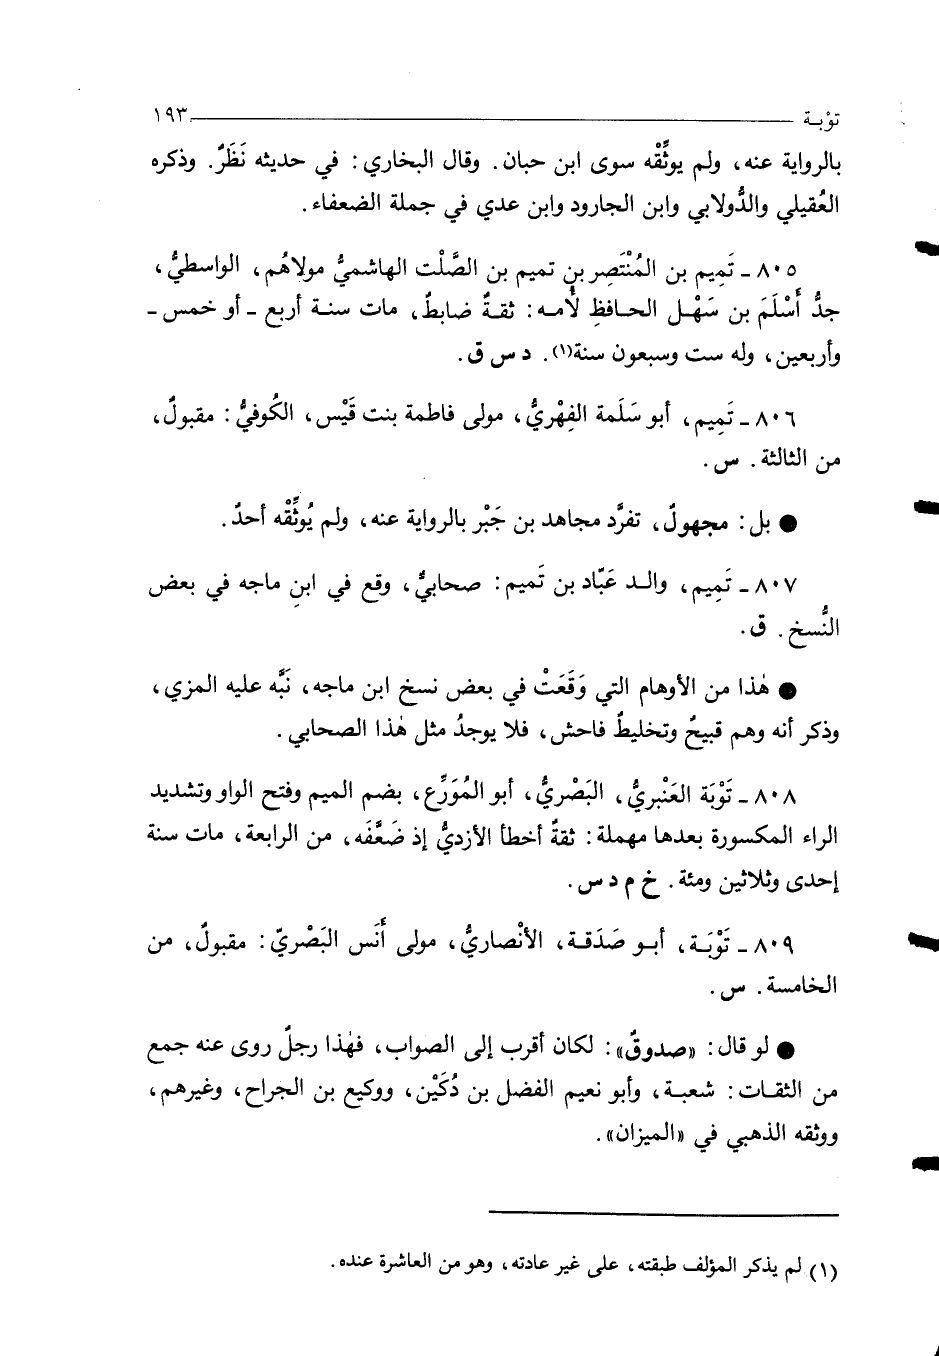 توْبـة ١٩٣
بالرواية عنه، ولم يوثِّقْه سوى ابن حبان. وقال البخاري: في حديثه نَظَرٌ. وذكره
العُقيلي والدُّولابي وابن الجارود وابن عدي في جملة الضعفاء.
٨٠٥ ـ تَمِيم بن المُنْتَصِر بنِ تميم بن الصَّلْت الهاشميُّ مولاهُم، الواسطيُّ،
جدُّ أَسْلَمَ بن سَهْـل الحـافظِ لأُمـه: ثقـةٌ ضابطٌ، مات سنـة أربع ـ أو خمس ـ
وأربعين، وله ست وسبعون سنة(١). د س ق.
٨٠٦ ـ تَمِيم، أبو سَلَمة الفِهْريُّ، مولى فاطمة بنت قَيْس، الكُوفيُّ: مقبولٌ،
من الثالثة. س.
● بل: مجهولٌ، تفرَّد مجاهد بن جَبْر بالرواية عنه، ولم يُوثِّقْه أحدٌ.
٨٠٧ ـ تَمِيم، والـد عَبّاد بن تَميم: صحابيٌّ، وقع في ابنِ ماجه في بعض
النُّسخ. ق.
● هٰذا من الأوهام التي وَقَعَتْ في بعض نسخ ابن ماجه، نَبَّه عليه المزي،
وذكر أنه وهم قبيحٌ وتخليطٌ فاحش، فلا يوجدُ مثل هٰذا الصحابي.
٨٠٨ ـ تَوْبَة العَنْبريُّ، البَصْريُّ، أبو المُوَرِّع، بضم الميم وفتح الواو وتشديد
الراء المكسورة بعدها مهملة: ثقةٌ أخطأ الأزديُّ إذ ضَعَّفَه، من الرابعة، مات سنة
إحدى وثلاثين ومئة. خ م د س.
٨٠٩ ـ تَوْبَـة، أبـو صَدَقـة، الأنْصاريُّ، مولى أَنَس البَصْريّ: مقبولٌ، من
الخامسة. س.
● لو قال: «صدوقٌ»: لكان أقرب إلى الصواب، فهٰذا رجلٌ روى عنه جمع
من الثقـات: شعبـة، وأبو نعيم الفضل بن دُكَيْن، ووكيع بن الجراح، وغيرهم،
ووثقه الذهبي في «الميزان».
(١) لم يذكر المؤلف طبقته، على غير عادته، وهو من العاشرة عنده.